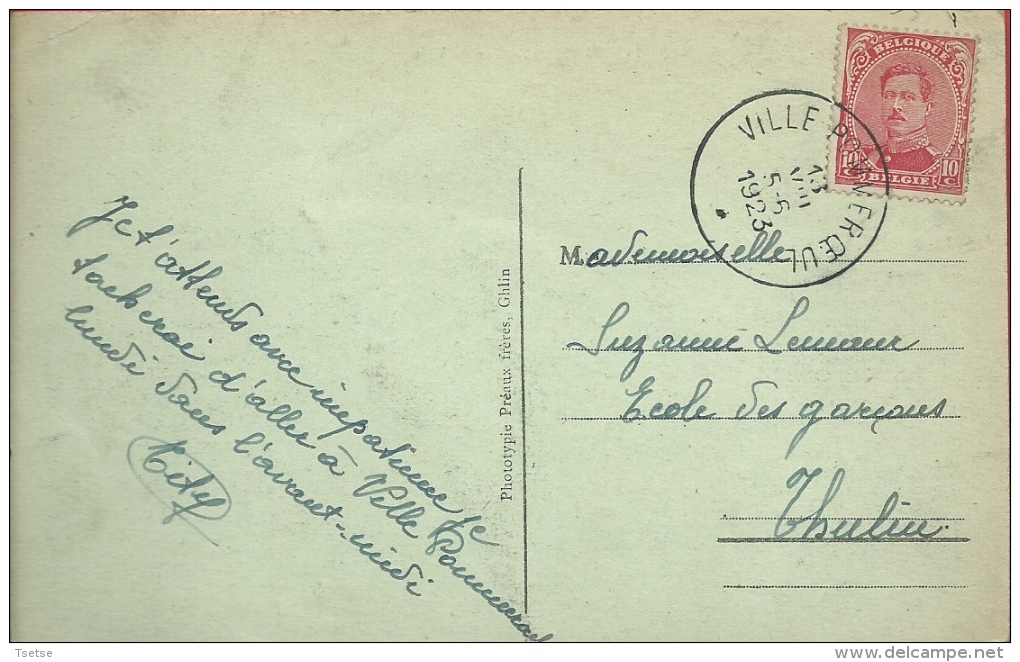 BELGIQUE
10 10
BELGIE
VILLE POMMERŒUL
13
VIII
5-6
1923
Je t'attends avec impatience je
tacherai d'aller à Ville Pommerœul
lundi dans l'avant-midi
Tity
Phototypie Préaux frères, Ghlin
Mademoiselle
Suzanne Lemaur
Ecole des garçons
Thulin
Tsetse
delcampe.net